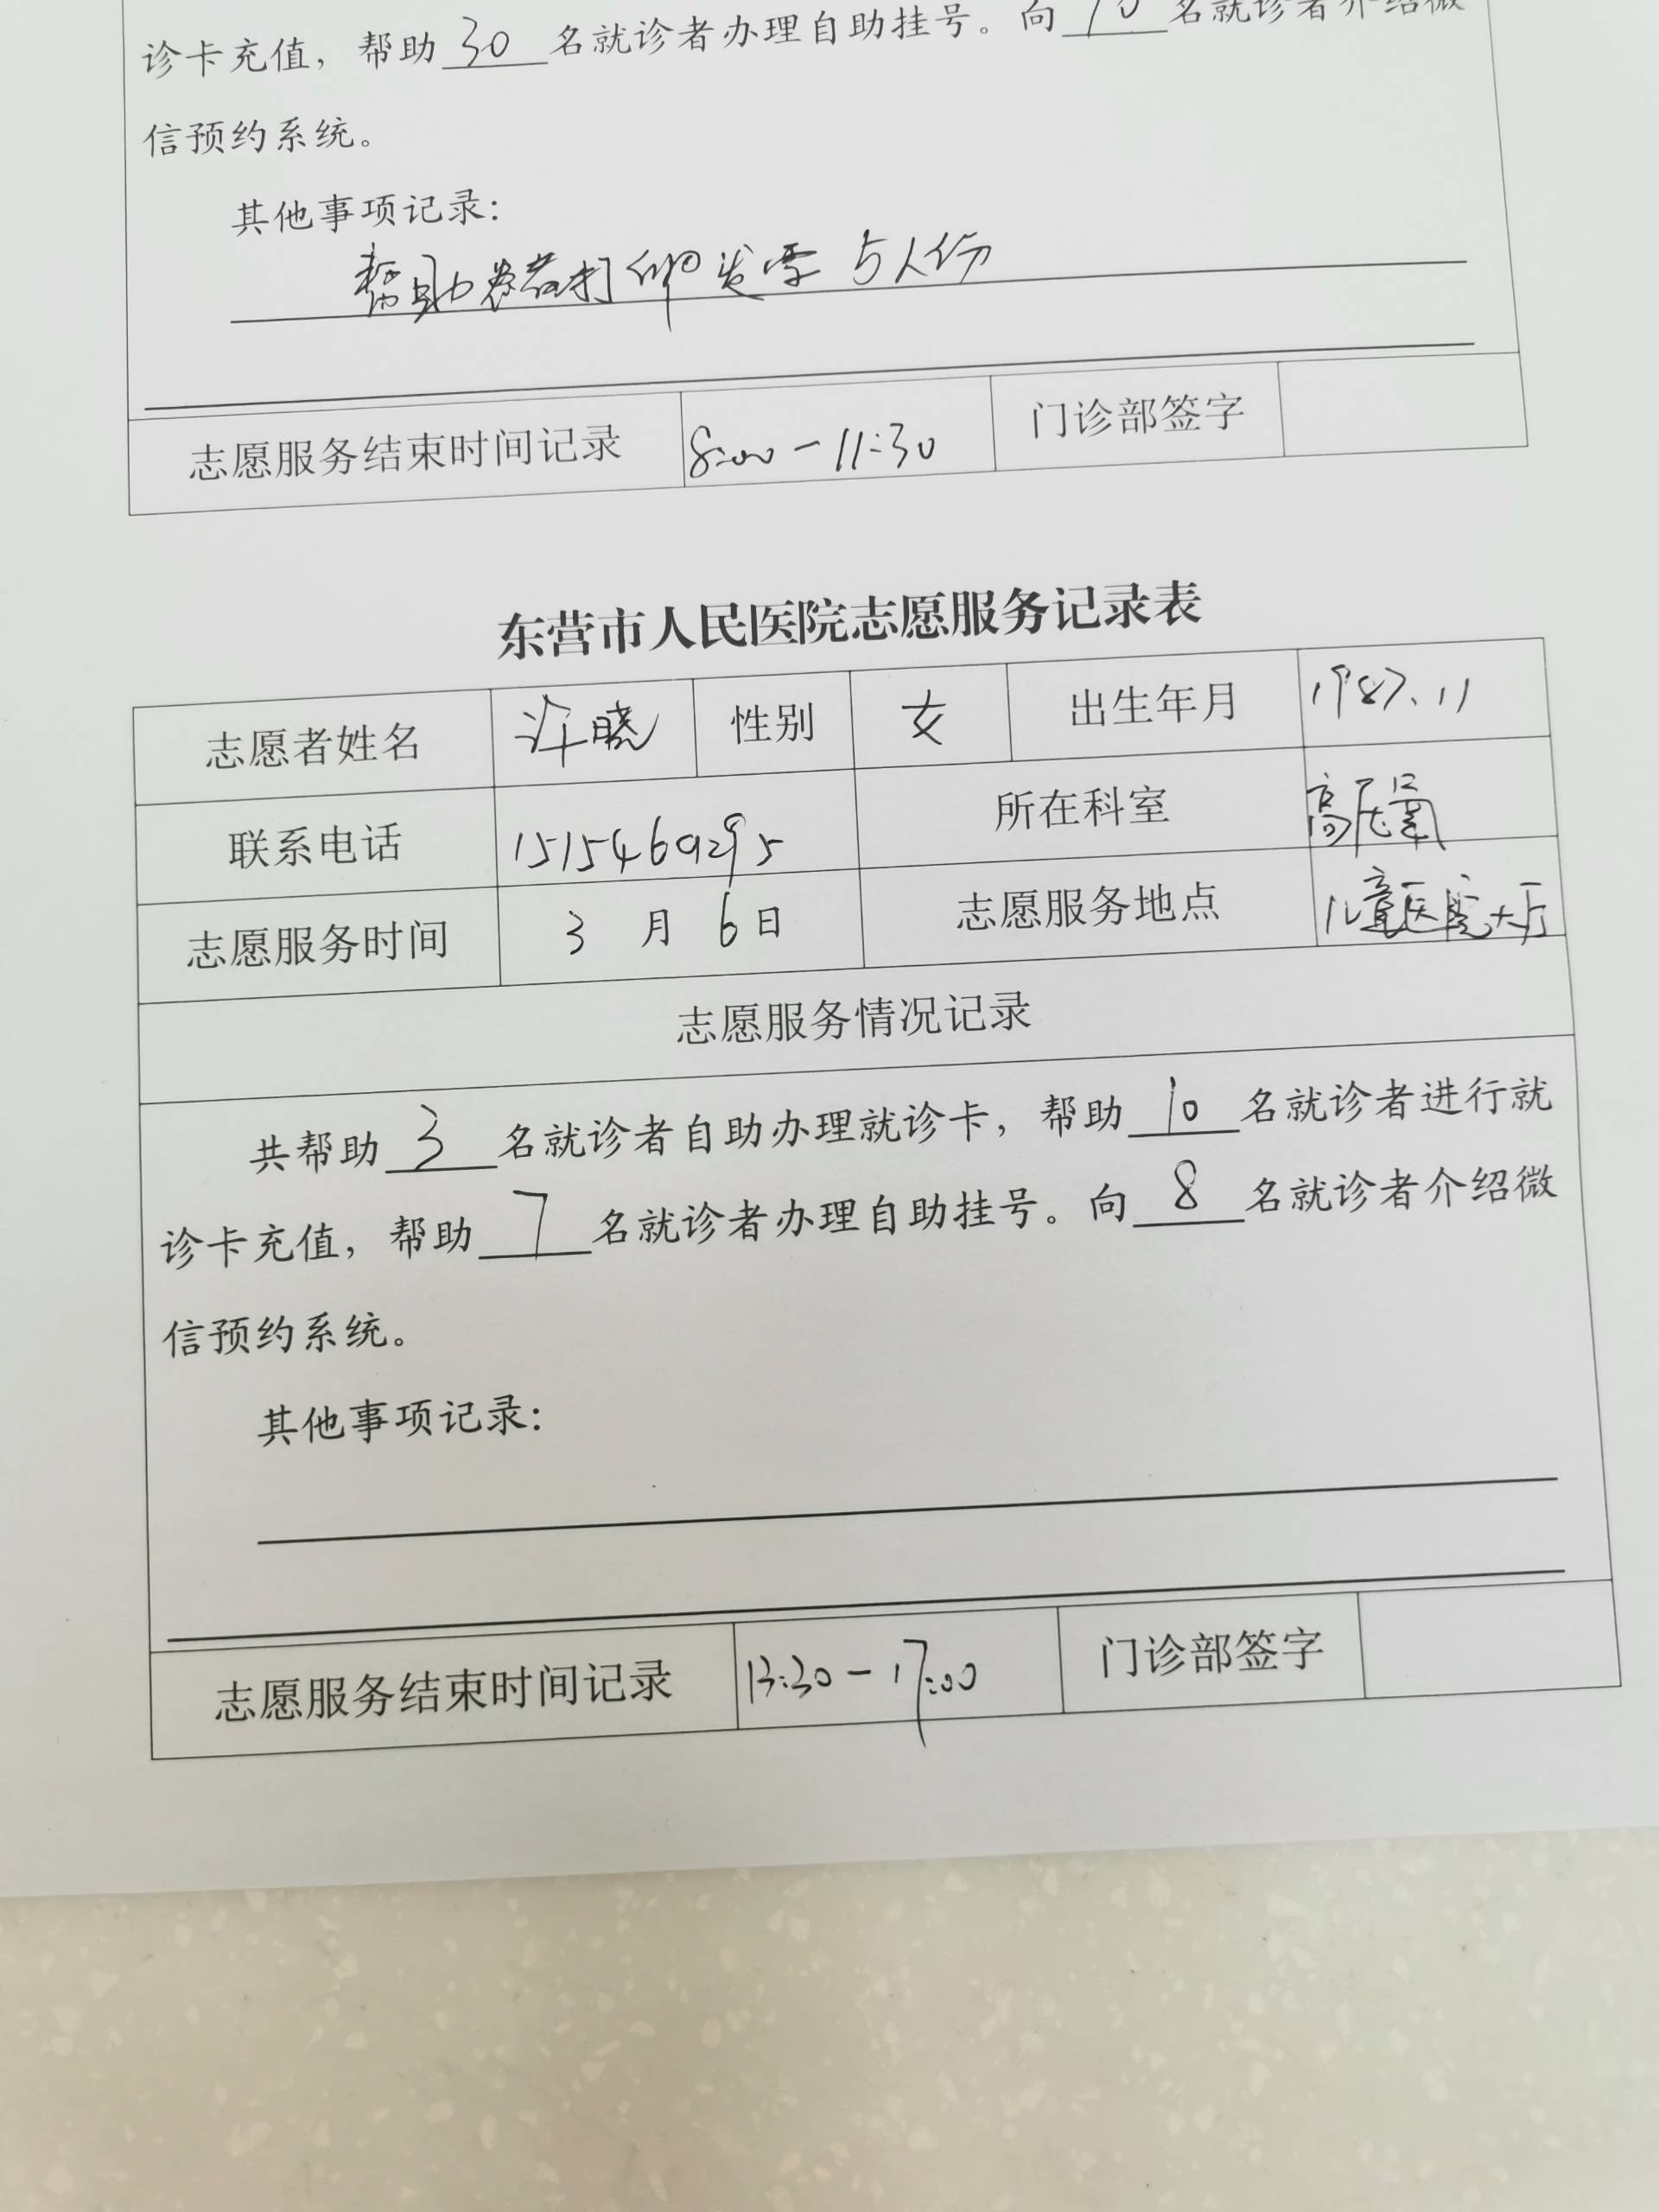 诊卡充值，帮助30名就诊者办理自助挂号。向10名就诊者介绍微
信预约系统。
其他事项记录：
帮助患者打印发票5人份
志愿服务结束时间记录 8:00-11:30 门诊部签字
东营市人民医院志愿服务记录表
志愿者姓名 许晓 性别 女 出生年月 1987.11
联系电话 15154669295 所在科室 高压氧
志愿服务时间 3月6日 志愿服务地点 儿童医院大厅
志愿服务情况记录
共帮助3名就诊者自助办理就诊卡，帮助10名就诊者进行就
诊卡充值，帮助7名就诊者办理自助挂号。向8名就诊者介绍微
信预约系统。
其他事项记录：
志愿服务结束时间记录 13:30-17:00 门诊部签字